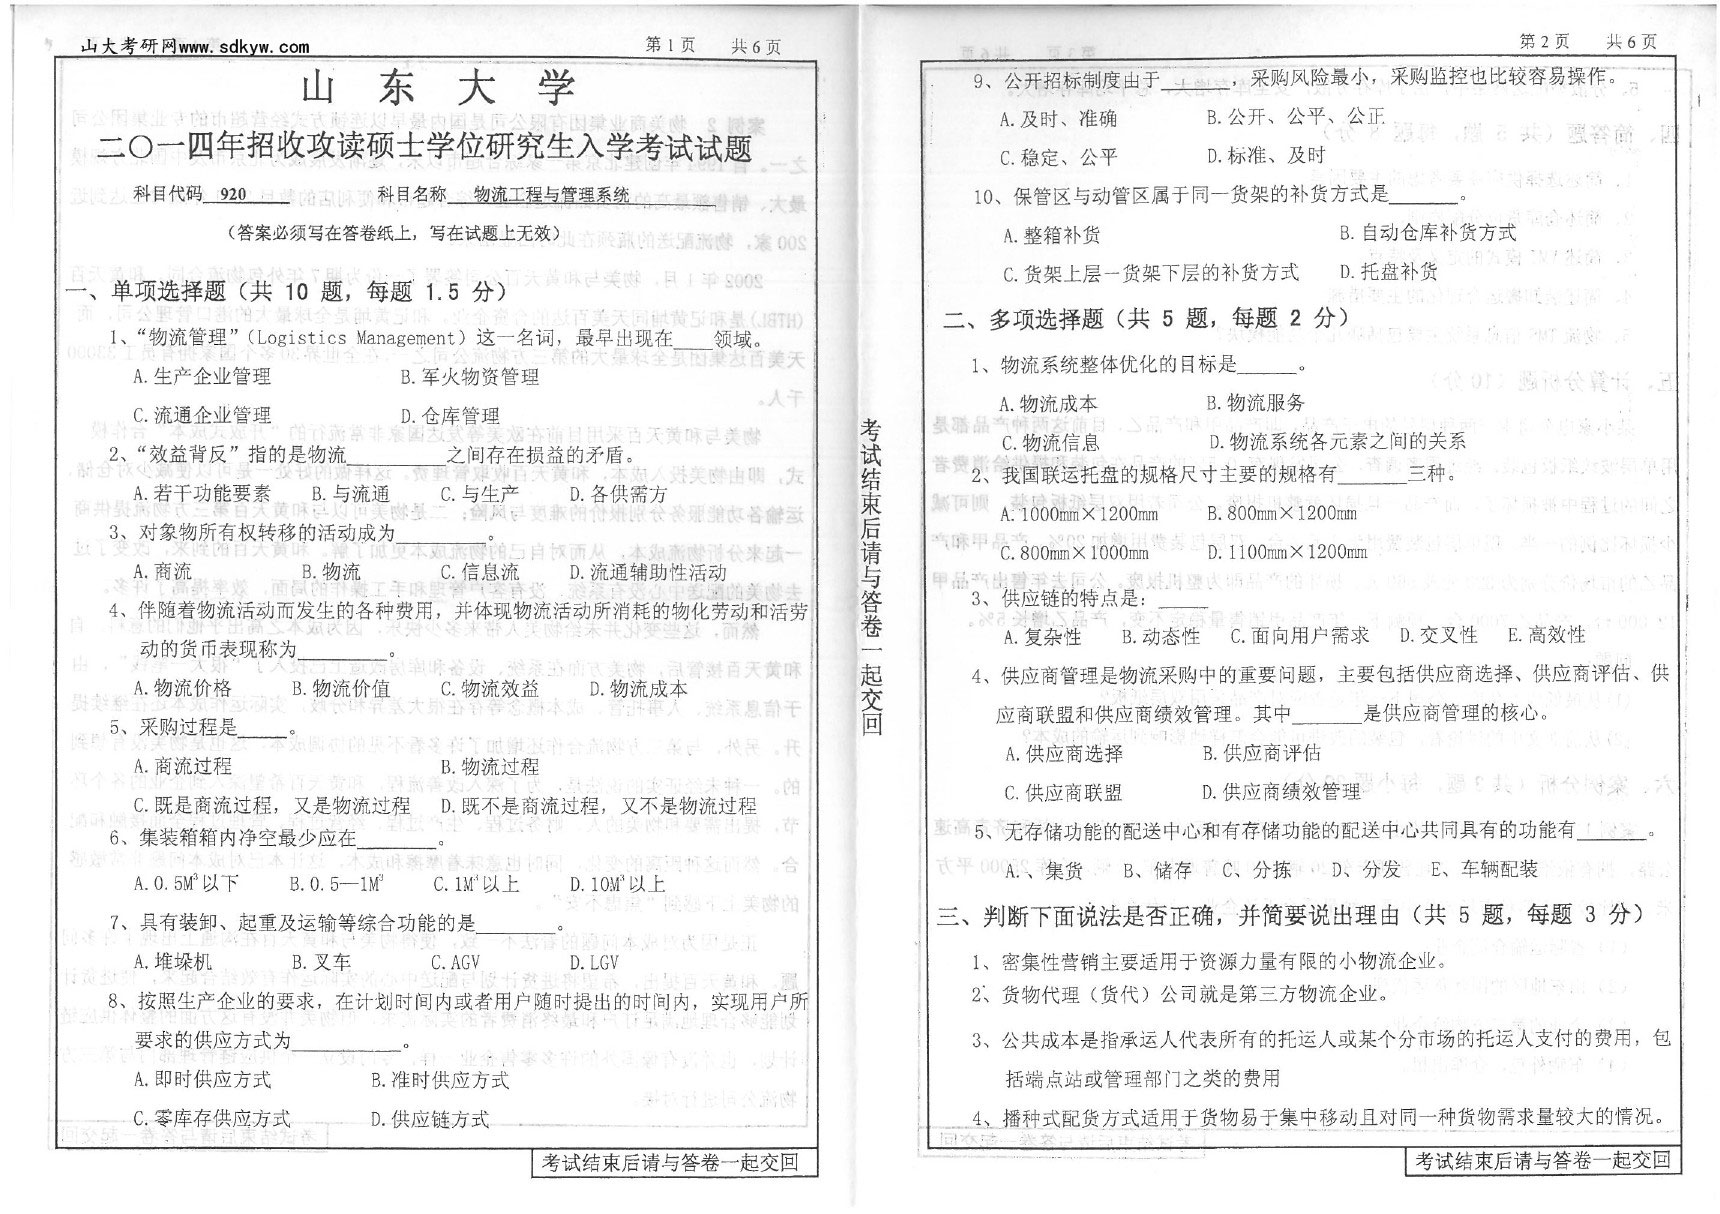 山大考研网www.sdkyw.com
第1页 共6页
山 东 大 学
二〇一四年招收攻读硕士学位研究生入学考试试题
科目代码 920 科目名称 物流工程与管理系统
（答案必须写在答卷纸上，写在试题上无效）
一、单项选择题（共 10 题，每题 1.5 分）
1、“物流管理”（Logistics Management）这一名词，最早出现在____领域。
A.生产企业管理 B.军火物资管理
C.流通企业管理 D.仓库管理
2、“效益背反”指的是物流__________之间存在损益的矛盾。
A.若干功能要素 B.与流通 C.与生产 D.各供需方
3、对象物所有权转移的活动成为_________。
A.商流 B.物流 C.信息流 D.流通辅助性活动
4、伴随着物流活动而发生的各种费用，并体现物流活动所消耗的物化劳动和活劳
动的货币表现称为_________。
A.物流价格 B.物流价值 C.物流效益 D.物流成本
5、采购过程是_____。
A.商流过程 B.物流过程
C.既是商流过程，又是物流过程 D.既不是商流过程，又不是物流过程
6、集装箱箱内净空最少应在________。
A.0.5M³以下 B.0.5—1M³ C.1M³以上 D.10M³以上
7、具有装卸、起重及运输等综合功能的是________。
A.堆垛机 B.叉车 C.AGV D.LGV
8、按照生产企业的要求，在计划时间内或者用户随时提出的时间内，实现用户所
要求的供应方式为___________。
A.即时供应方式 B.准时供应方式
C.零库存供应方式 D.供应链方式
考试结束后请与答卷一起交回
考试结束后请与答卷一起交回
第2页 共6页
9、公开招标制度由于_______，采购风险最小，采购监控也比较容易操作。
A.及时、准确 B.公开、公平、公正
C.稳定、公平 D.标准、及时
10、保管区与动管区属于同一货架的补货方式是_______。
A.整箱补货 B.自动仓库补货方式
C.货架上层一货架下层的补货方式 D.托盘补货
二、多项选择题（共 5 题，每题 2 分）
1、物流系统整体优化的目标是______。
A.物流成本 B.物流服务
C.物流信息 D.物流系统各元素之间的关系
2、我国联运托盘的规格尺寸主要的规格有_______三种。
A.1000mm×1200mm B.800mm×1200mm
C.800mm×1000mm D.1100mm×1200mm
3、供应链的特点是：_____
A.复杂性 B.动态性 C.面向用户需求 D.交叉性 E.高效性
4、供应商管理是物流采购中的重要问题，主要包括供应商选择、供应商评估、供
应商联盟和供应商绩效管理。其中_______是供应商管理的核心。
A.供应商选择 B.供应商评估
C.供应商联盟 D.供应商绩效管理
5、无存储功能的配送中心和有存储功能的配送中心共同具有的功能有_______。
A.、集货 B、储存 C、分拣 D、分发 E、车辆配装
三、判断下面说法是否正确，并简要说出理由（共 5 题，每题 3 分）
1、密集性营销主要适用于资源力量有限的小物流企业。
2、货物代理（货代）公司就是第三方物流企业。
3、公共成本是指承运人代表所有的托运人或某个分市场的托运人支付的费用，包
括端点站或管理部门之类的费用
4、播种式配货方式适用于货物易于集中移动且对同一种货物需求量较大的情况。
考试结束后请与答卷一起交回